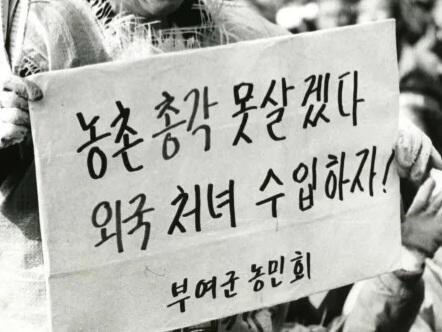 농촌 총각 못살겠다
외국 처녀 수입하자!
부여군 농민회